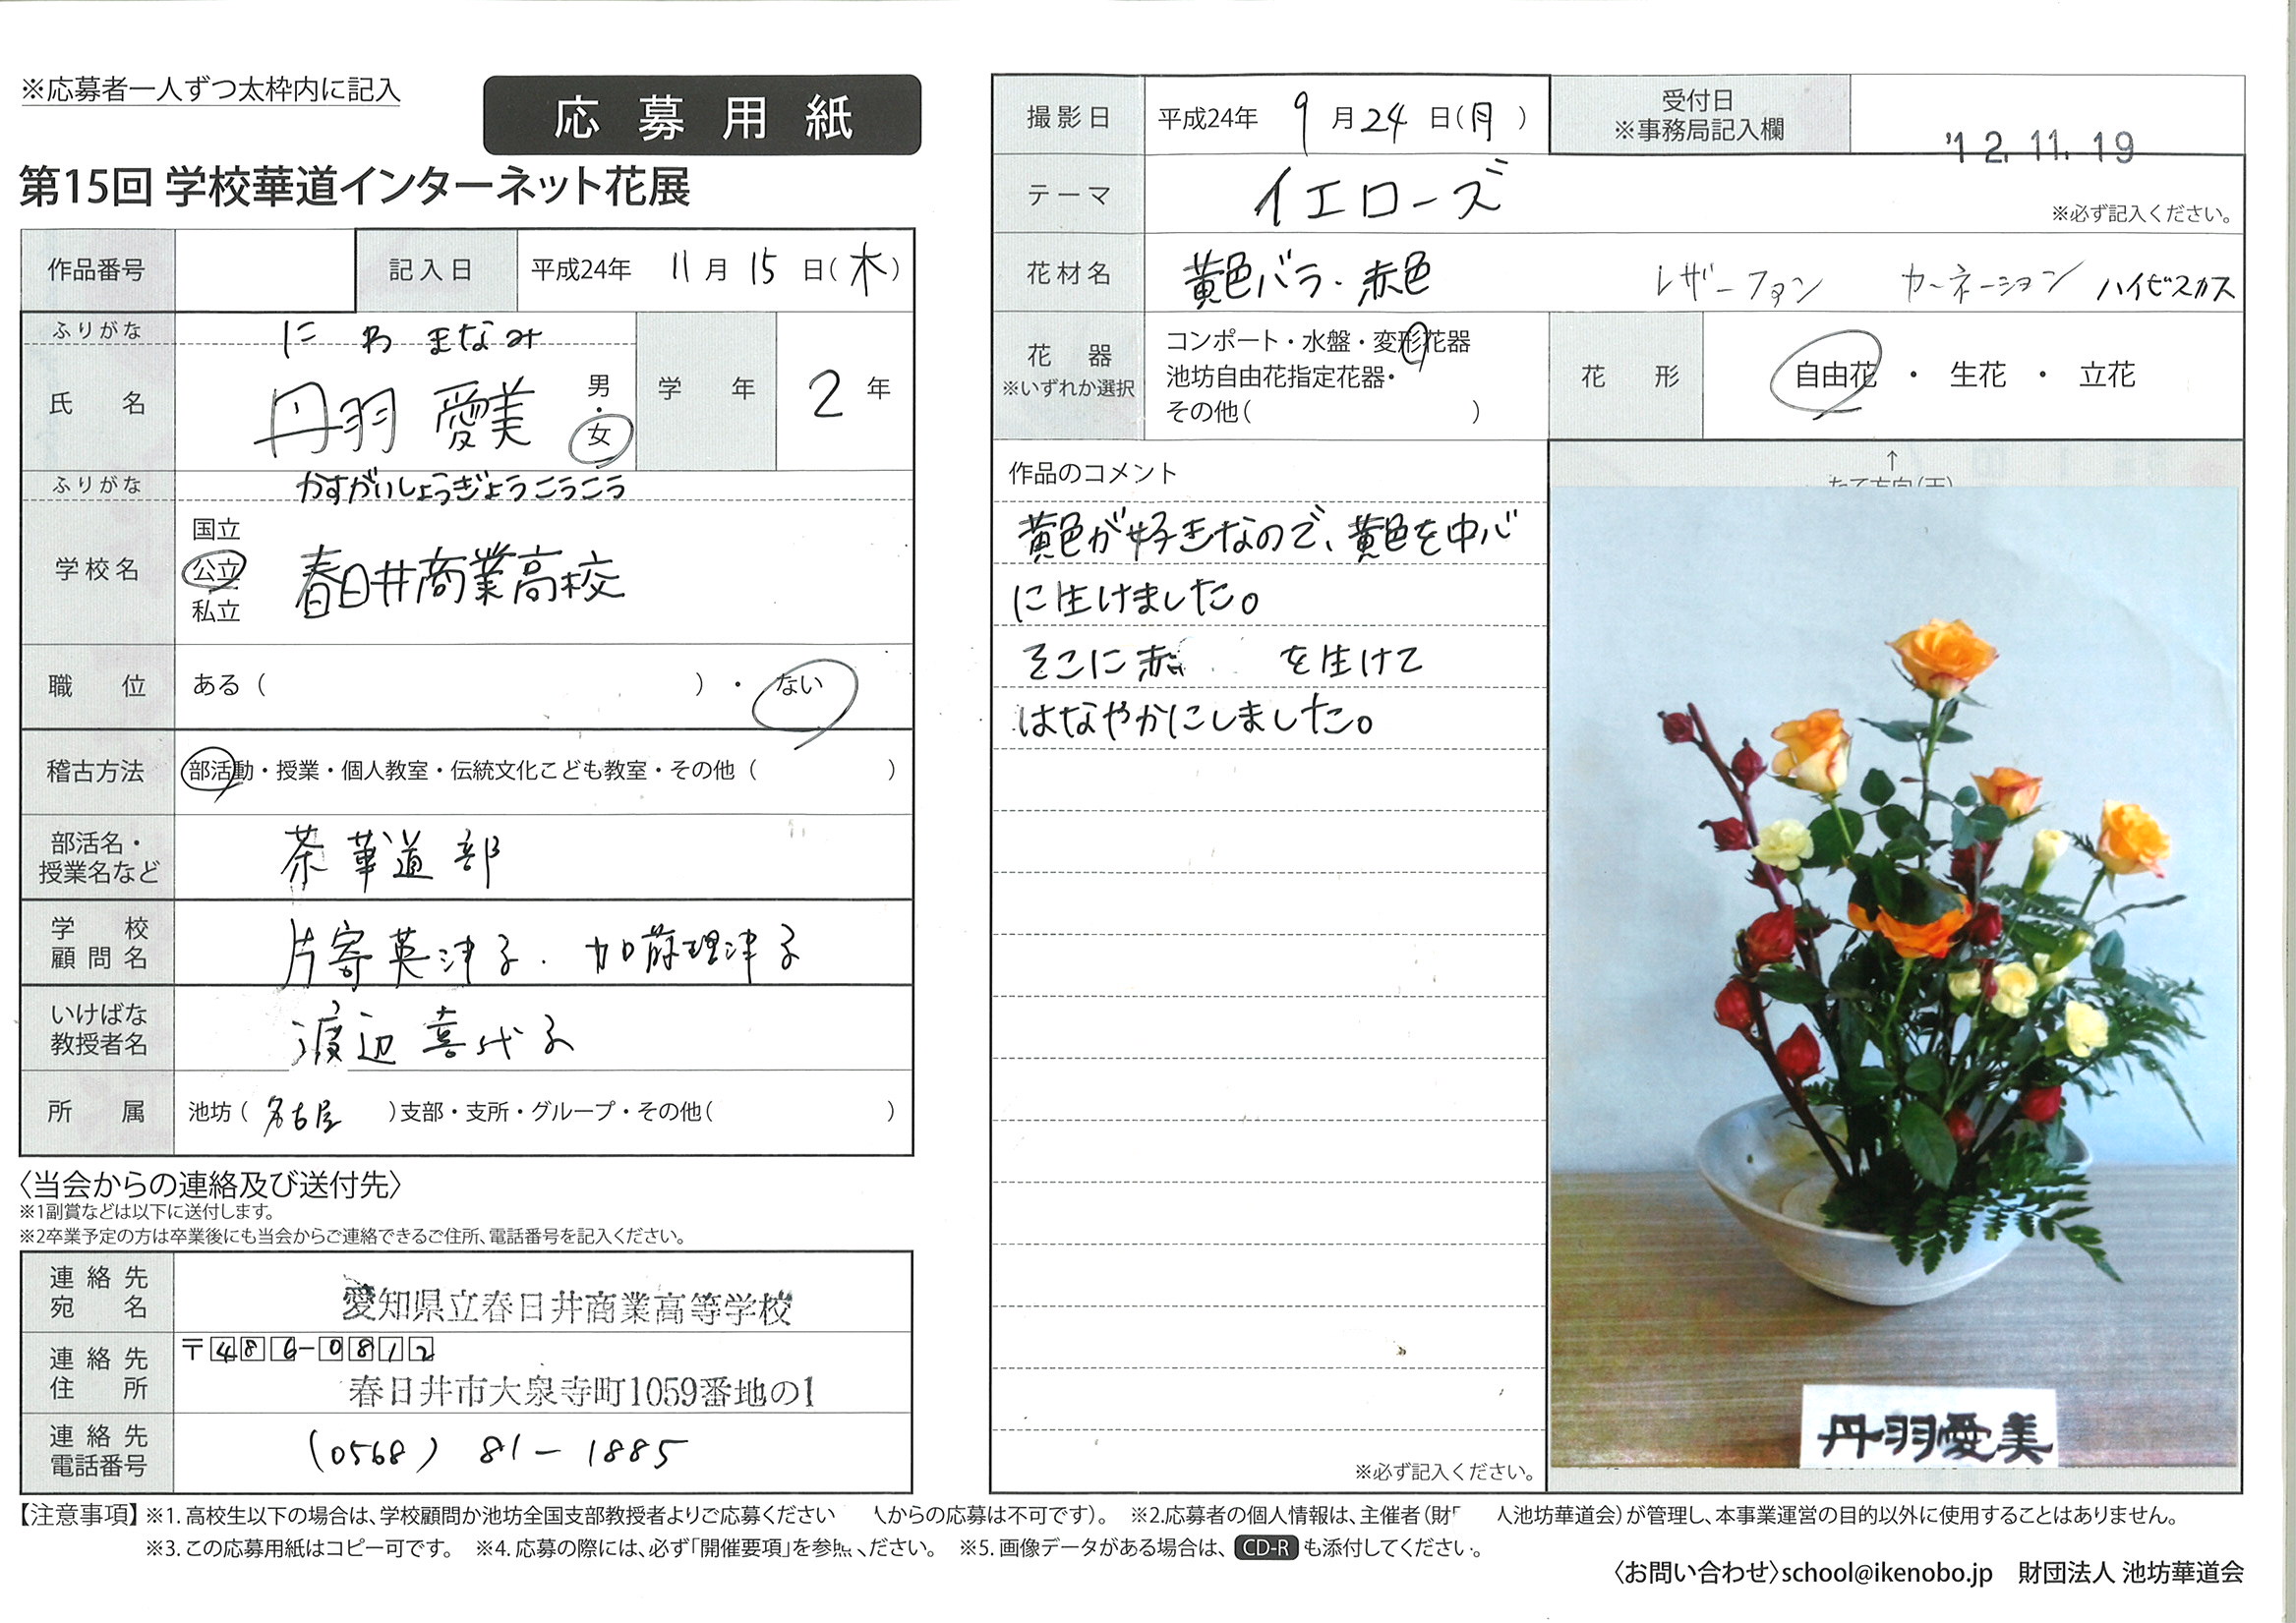 ※応募者一人ずつ太枠内に記入
応募用紙
第15回 学校華道インターネット花展
作品番号
記入日 平成24年 11月 15日(木)
ふりがな にわ まなみ
氏名 丹羽 愛美 男・女
学年 2年
ふりがな かすがいしょうぎょうこうこう
学校名 国立 公立 私立 春日井商業高校
職位 ある( )・ない
稽古方法 部活動・授業・個人教室・伝統文化こども教室・その他( )
部活名・授業名など 茶華道部
学校顧問名 片寄英津子・加藤理津子
いけばな教授者名 渡辺喜代子
所属 池坊(名古屋)支部・支所・グループ・その他( )
〈当会からの連絡及び送付先〉
※1副賞などは以下に送付します。
※2卒業予定の方は卒業後にも当会からご連絡できるご住所、電話番号を記入ください。
連絡先宛名 愛知県立春日井商業高等学校
連絡先住所 〒486-0812
春日井市大泉寺町1059番地の1
連絡先電話番号 (0568) 81-1885
撮影日 平成24年 9月24日(月)
受付日
※事務局記入欄
'12.11.19
テーマ イエローズ
※必ず記入ください。
花材名 黄色バラ・赤色 レザーファン カーネーション ハイビスカス
花器 ※いずれか選択
コンポート・水盤・変形花器
池坊自由花指定花器・
その他( )
花形 自由花・生花・立花
作品のコメント
黄色が好きなので、黄色を中心
に生けました。
そこに赤 を生けて
はなやかにしました。
※必ず記入ください。
↑
たて方向(天)
丹羽愛美
【注意事項】※1.高校生以下の場合は、学校顧問か池坊全国支部教授者よりご応募ください 人からの応募は不可です)。 ※2.応募者の個人情報は、主催者(財 人池坊華道会)が管理し、本事業運営の目的以外に使用することはありません。
※3.この応募用紙はコピー可です。 ※4.応募の際には、必ず「開催要項」を参照ください。 ※5.画像データがある場合は、CD-Rも添付してください。
〈お問い合わせ〉school@ikenobo.jp 財団法人 池坊華道会